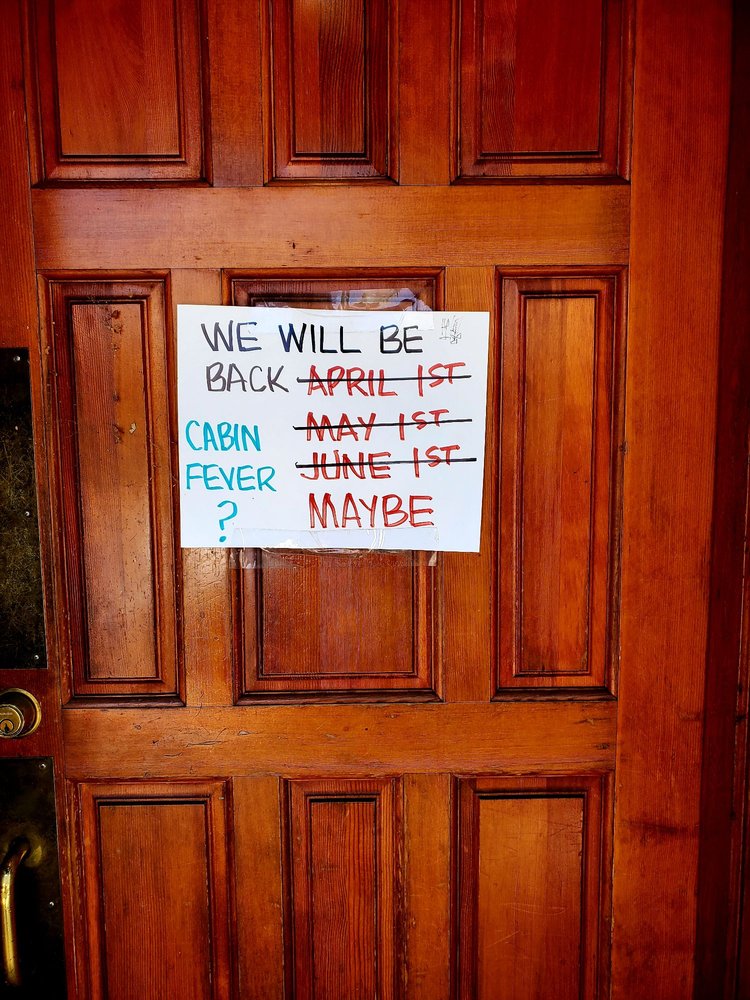 WE WILL BE
BACK APRIL 1ST
MAY 1ST
JUNE 1ST
MAYBE
CABIN
FEVER
?